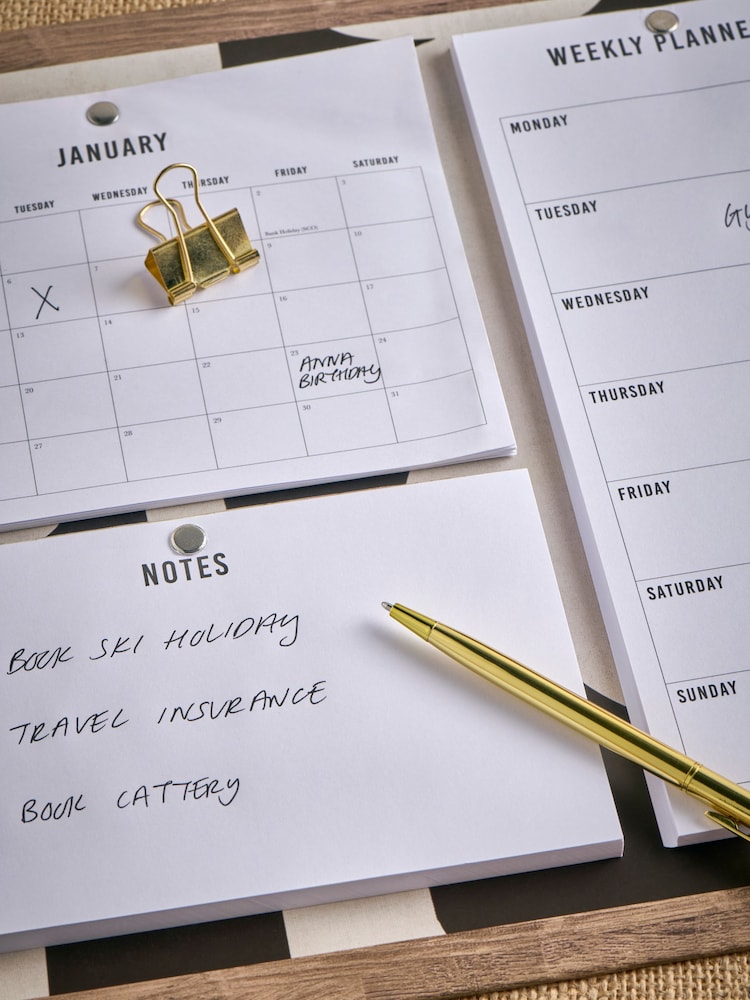 JANUARY
TUESDAY WEDNESDAY THURSDAY FRIDAY SATURDAY
2 3
Bank Holiday (SCO)
6 7 9 10
X
13 14 15 16 17
20 21 22 23 24
ANNA
BIRTHDAY
27 28 29 30 31
NOTES
BOOK SKI HOLIDAY
TRAVEL INSURANCE
BOOK CATTERY
WEEKLY PLANNE
MONDAY
TUESDAY
WEDNESDAY
THURSDAY
FRIDAY
SATURDAY
SUNDAY